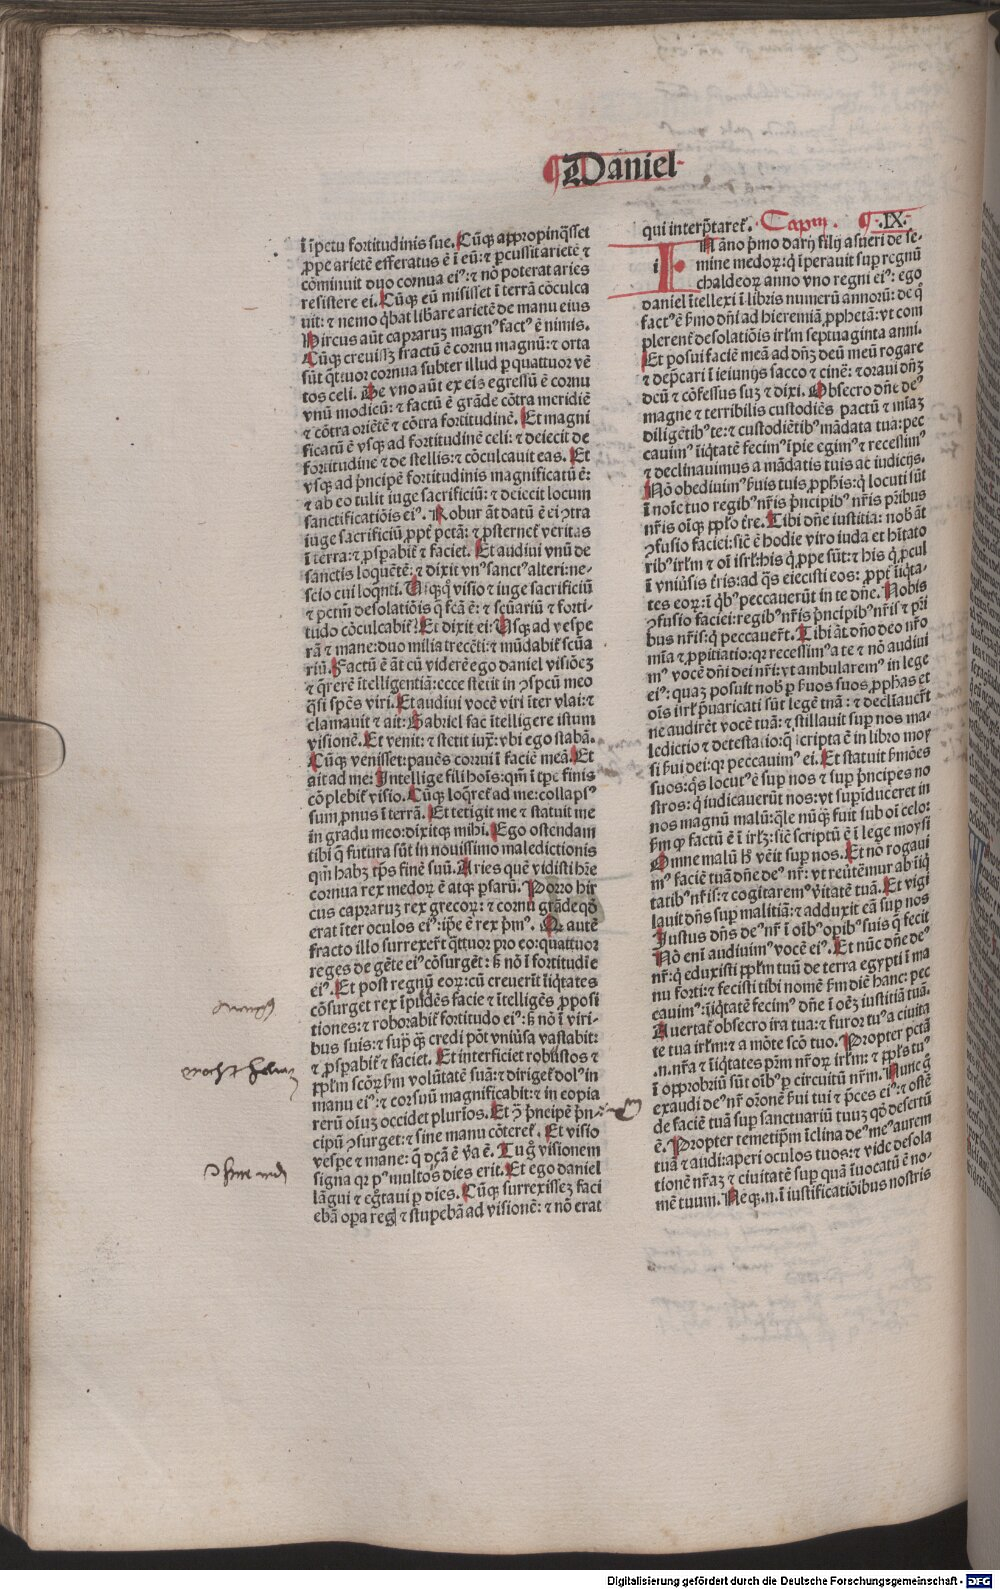 Daniel
ī īpetu fortitudinis sue. Cūqꝫ appropinq̄sset
ꝓpe arietē efferatus ē ī eū: ⁊ ꝑcussit arietē ⁊
cōminuit duo cornua eiꝰ: ⁊ nō poterat aries
resistere ei. Cūqꝫ eū misisset ī terrā cōculca
uit: ⁊ nemo q̇bat liƀare arietē de manu eius
Hircus aūt capraruꝫ magnꝰ factꝰ ē nimis.
Cūqꝫ creuissꝫ fractū ē cornu magnū: ⁊ orta
sūt q̄ttuor cornua subter illud ꝑ quattuor vē
tos celi. De vno aūt ex eis egressū ē cornu
vnū modicū: ⁊ factū ē grāde cōtra meridiē
⁊ cōtra oriētē ⁊ cōtra fortitudinē. Et magni
ficatū ē vsqꝫ ad fortitudinē celi: ⁊ deiecit de
fortitudine ⁊ de stellis: ⁊ cōculcauit eas. Et
vsqꝫ ad p̄ncipē fortitudinis magnificatū ē:
⁊ ab eo tulit iuge sacrificiū: ⁊ deiecit locum
sanctificatiōis eiꝰ. Robur āt datū ē ei ꝯtra
iuge sacrificiū ꝓpt̄ pctā: ⁊ ꝓsternet̄ veritas
ī terra: ⁊ ꝓsꝑabit̄ ⁊ faciet. Et audiui vnū de
sanctis loquētē: ⁊ dixit vnꝰ sanctꝰ alteri: ne-
scio cui loq̄nti. Usqꝫ quo visio ⁊ iuge sacrificiū
⁊ pctm̄ desolatiōis q̄ fcā ē: ⁊ scūariū ⁊ forti-
tudo cōculcabit̄? Et dixit ei: Usqꝫ ad vespe
rā ⁊ mane: duo milia trecēti: ⁊ mūdabit̄ scūa
riū. Factū ē āt cū viderē ego daniel visiōeꝫ
⁊ q̄rerē ītelligentiā: ecce stetit in ꝯspcū meo
q̄si spēs viri. Et audiui vocē viri īter vlai: ⁊
clamauit ⁊ ait: Gabriel fac ītelligere istum
visionē. Et venit: ⁊ stetit iuxͣ: vbi ego stabā.
Cūqꝫ venisset: pauēs corrui ī faciē meā. Et
ait ad me: Intellige fili hoīs: qm̄ ī tpe finis
cōplebit̄ visio. Cūqꝫ loq̄ret̄ ad me: collapsꝰ
sum pronus ī terrā. Et tetigit me ⁊ statuit me
in gradu meo: dixitqꝫ mihi. Ego ostendam
tibi q̄ futura sūt in nouissimo maledictionis
qm̄ habꝫ tp̄s finē suū. Aries quē vidisti hr̄e
cornua rex medoꝝ ē atqꝫ ꝑsarū. Porro hir
cus capraruꝫ rex grecoꝝ: ⁊ cornu grāde qđ
erat īter oculos eiꝰ: ip̄e ē rex p̄mꝰ. Qđ autē
fracto illo surrexer̄t q̄ttuor pro eo: quattuor
reges de gēte eiꝰ cōsurgēt: s̄ꝫ nō ī fortitudīe
eiꝰ. Et post regnū eoꝝ: cū creuerīt īiq̄tates
cōsurget rex īpudēs facie ⁊ ītelligēs ꝓposi
tiones: ⁊ roborabit̄ fortitudo eiꝰ: s̄ꝫ nō ī viri-
bus suis: ⁊ supͣ qꝫ credi pōt vniūsa vastabit:
⁊ ꝓsꝑabit̄ ⁊ faciet. Et interficiet robustos ⁊
ppl̄m scōꝝ s̄m volūtatē suā: ⁊ diriget̄ dolꝰ in
manu eiꝰ: ⁊ cor suū magnificabit: ⁊ in copia
rerū oīuꝫ occidet plurīos. Et ꝯͣ p̄ncipē p̄n-
cipū ꝯsurget: ⁊ sine manu cōteret̄. Et visio
vesꝑe ⁊ mane: q̄ dcā ē v̄a ē. Tu g̊ visionem
signa qꝛ pꝰ multos dies erit. Et ego daniel
lāgui ⁊ eg̊taui ꝑ dies. Cūqꝫ surrexisseꝫ faci
ebā oꝑa regꝭ ⁊ stupebā ad visionē: ⁊ nō erat
qui interp̄taret̄. Capm. IX.
i
N āno p̄mo darij filij asueri de se-
mine medoꝝ: q̇ īperauit suꝑ regnū
chaldeoꝝ anno vno regni eiꝰ: ego
daniel ītellexi ī libris numerū annorū: de q̊
factꝰ ē s̄mo dn̄i ad hieremiā ꝓphetā: vt com
plerent̄ desolatiōis irl̄m septuaginta anni.
Et posui faciē meā ad dn̄ꝫ deū meū rogare
⁊ dep̄cari ī ieiunijs sacco ⁊ cinē: ⁊ oraui dn̄ꝫ
deū ⁊ cōfessus suꝫ ⁊ dixi. Obsecro dn̄e deꝰ
magne ⁊ terribilis custodiēs pactū ⁊ mīaꝫ
diligētibꝰ te: ⁊ custodiētibꝰ mādata tua: pec
cauimꝰ īiq̄tatē fecimꝰ īpie egimꝰ ⁊ recessimꝰ
⁊ declinauimus a mādatis tuis ac iudicijs.
Nō obediuimꝰ s̄uis tuis ꝓphis: q̇ locuti sūt
ī noīe tuo regibꝰ nr̄is p̄ncipibꝰ nr̄is pr̄ibus
nr̄is oīqꝫ pp̄lo t̄re. Tibi dn̄e iustitia: nob̄ āt
ꝯfusio faciei: sic̄ ē hodie viro iuda et hītato
ribꝰ irl̄m ⁊ oī isrl̄: his q̇ ꝓpe sūt: ⁊ his q̇ ꝓcul
ī vniūsis t̄ris: ad q̄s eiecisti eos: ꝓpt̄ īiq̄ta-
tes eoꝝ: ī q̇bꝰ peccauerūt in te dn̄e. Nobis
ꝯfusio faciei: regibꝰ nr̄is p̄ncipibꝰ nr̄is ⁊ pr̄i
bus nr̄is: q̇ peccauer̄t. Tibi āt dn̄o deo nr̄o
mīa ⁊ ꝓpitiatio: qꝛ recessimꝰ a te ⁊ nō audiui
mꝰ vocē dn̄i dei nr̄i: vt ambularemꝰ in lege
eiꝰ: quaꝫ posuit nob̄ ꝑ s̄uos suos ꝓphas et
oīs isrl̄ p̄uaricati sūt legē tuā: ⁊ declīauer̄t
ne audirēt vocē tuā: ⁊ stillauit suꝑ nos ma-
ledictio ⁊ detestatio: q̄ scripta ē in libro moy
si s̄ui dei: qꝛ peccauimꝰ ei. Et statuit s̄mōes
suos: q̄s locutꝰ ē suꝑ nos ⁊ suꝑ p̄ncipes no
stros: q̇ iudicauerūt nos: vt suꝑīduceret in
nos magnū malū: q̄le nūqꝫ fuit sub oī celo:
s̄m qđ factū ē ī irlꝫ: sic̄ scriptū ē ī lege moysi
Omne malū h̄ vēit suꝑ nos. Et nō rogaui
mꝰ faciē tuā dn̄e deꝰ nr̄: vt reūtemur ab īiq̄
tatibꝰ nr̄is: ⁊ cogitaremꝰ v̄itatē tuā. Et vigi
lauit dn̄s suꝑ malitiā: ⁊ adduxit eā suꝑ nos
Justus dn̄s deꝰ nr̄ ī oībꝰ oꝑibꝰ suis q̄ fecit
Nō enī audiuimꝰ vocē eiꝰ. Et nūc dn̄e deꝰ
nr̄: q̇ eduxisti pp̄lm tuū de terra egypti ī ma
nu forti: ⁊ fecisti tibi nomē s̄m diē hanc: pec
cauimꝰ: īiq̄tatē fecimꝰ dn̄e ī oēꝫ iustitiā tuā.
Auertat̄ obsecro ira tua: ⁊ furor tuꝰ a ciuita
te tua irl̄m: ⁊ a mōte scō tuo. Propter pctā
.n. nr̄a ⁊ īiq̄tates pr̄m nr̄oꝝ irl̄m: ⁊ pp̄ls tuꝰ
ī opprobriū sūt oībꝰ ꝑ circuitū nr̄m. Nunc g̊
exaudi deꝰ nr̄ orōnē s̄ui tui ⁊ p̄ces eiꝰ: ⁊ ostē
de faciē tuā suꝑ sanctuariū tuuꝫ qđ desertū
ē. Propter temetip̄m īclina deꝰ meꝰ aurem
tuā ⁊ audi: aperi oculos tuos: ⁊ vide desola
tionē nr̄aꝫ ⁊ ciuitatē suꝑ quā īuocatū ē no-
mē tuum. Neqꝫ .n. ī iustificatiōibus nostris
Digitalisierung gefördert durch die Deutsche Forschungsgemeinschaft - DFG